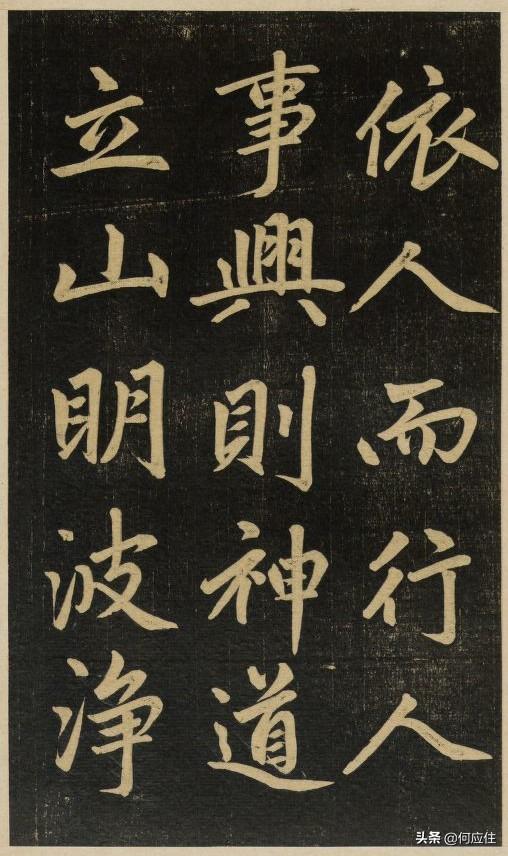 依人而行人
事興則神道
立山明波净
头条 @何应住